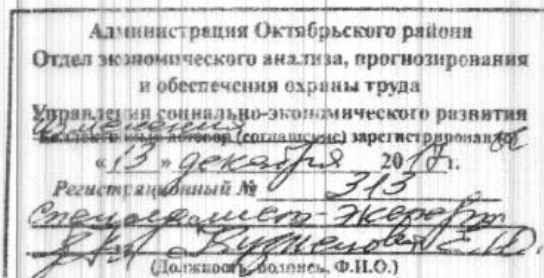 Администрация Октябрьского района
Отдел экономического анализа, прогнозирования
и обеспечения охраны труда
Управления социально-экономического развития
Изменения
Коллективный договор (соглашение) зарегистрирован
« 13 » декабря 2017 г.
Регистрационный № 313
Специалист-эксперт
Кузнецова Е.Ю.
(Должность, подпись, Ф.И.О.)